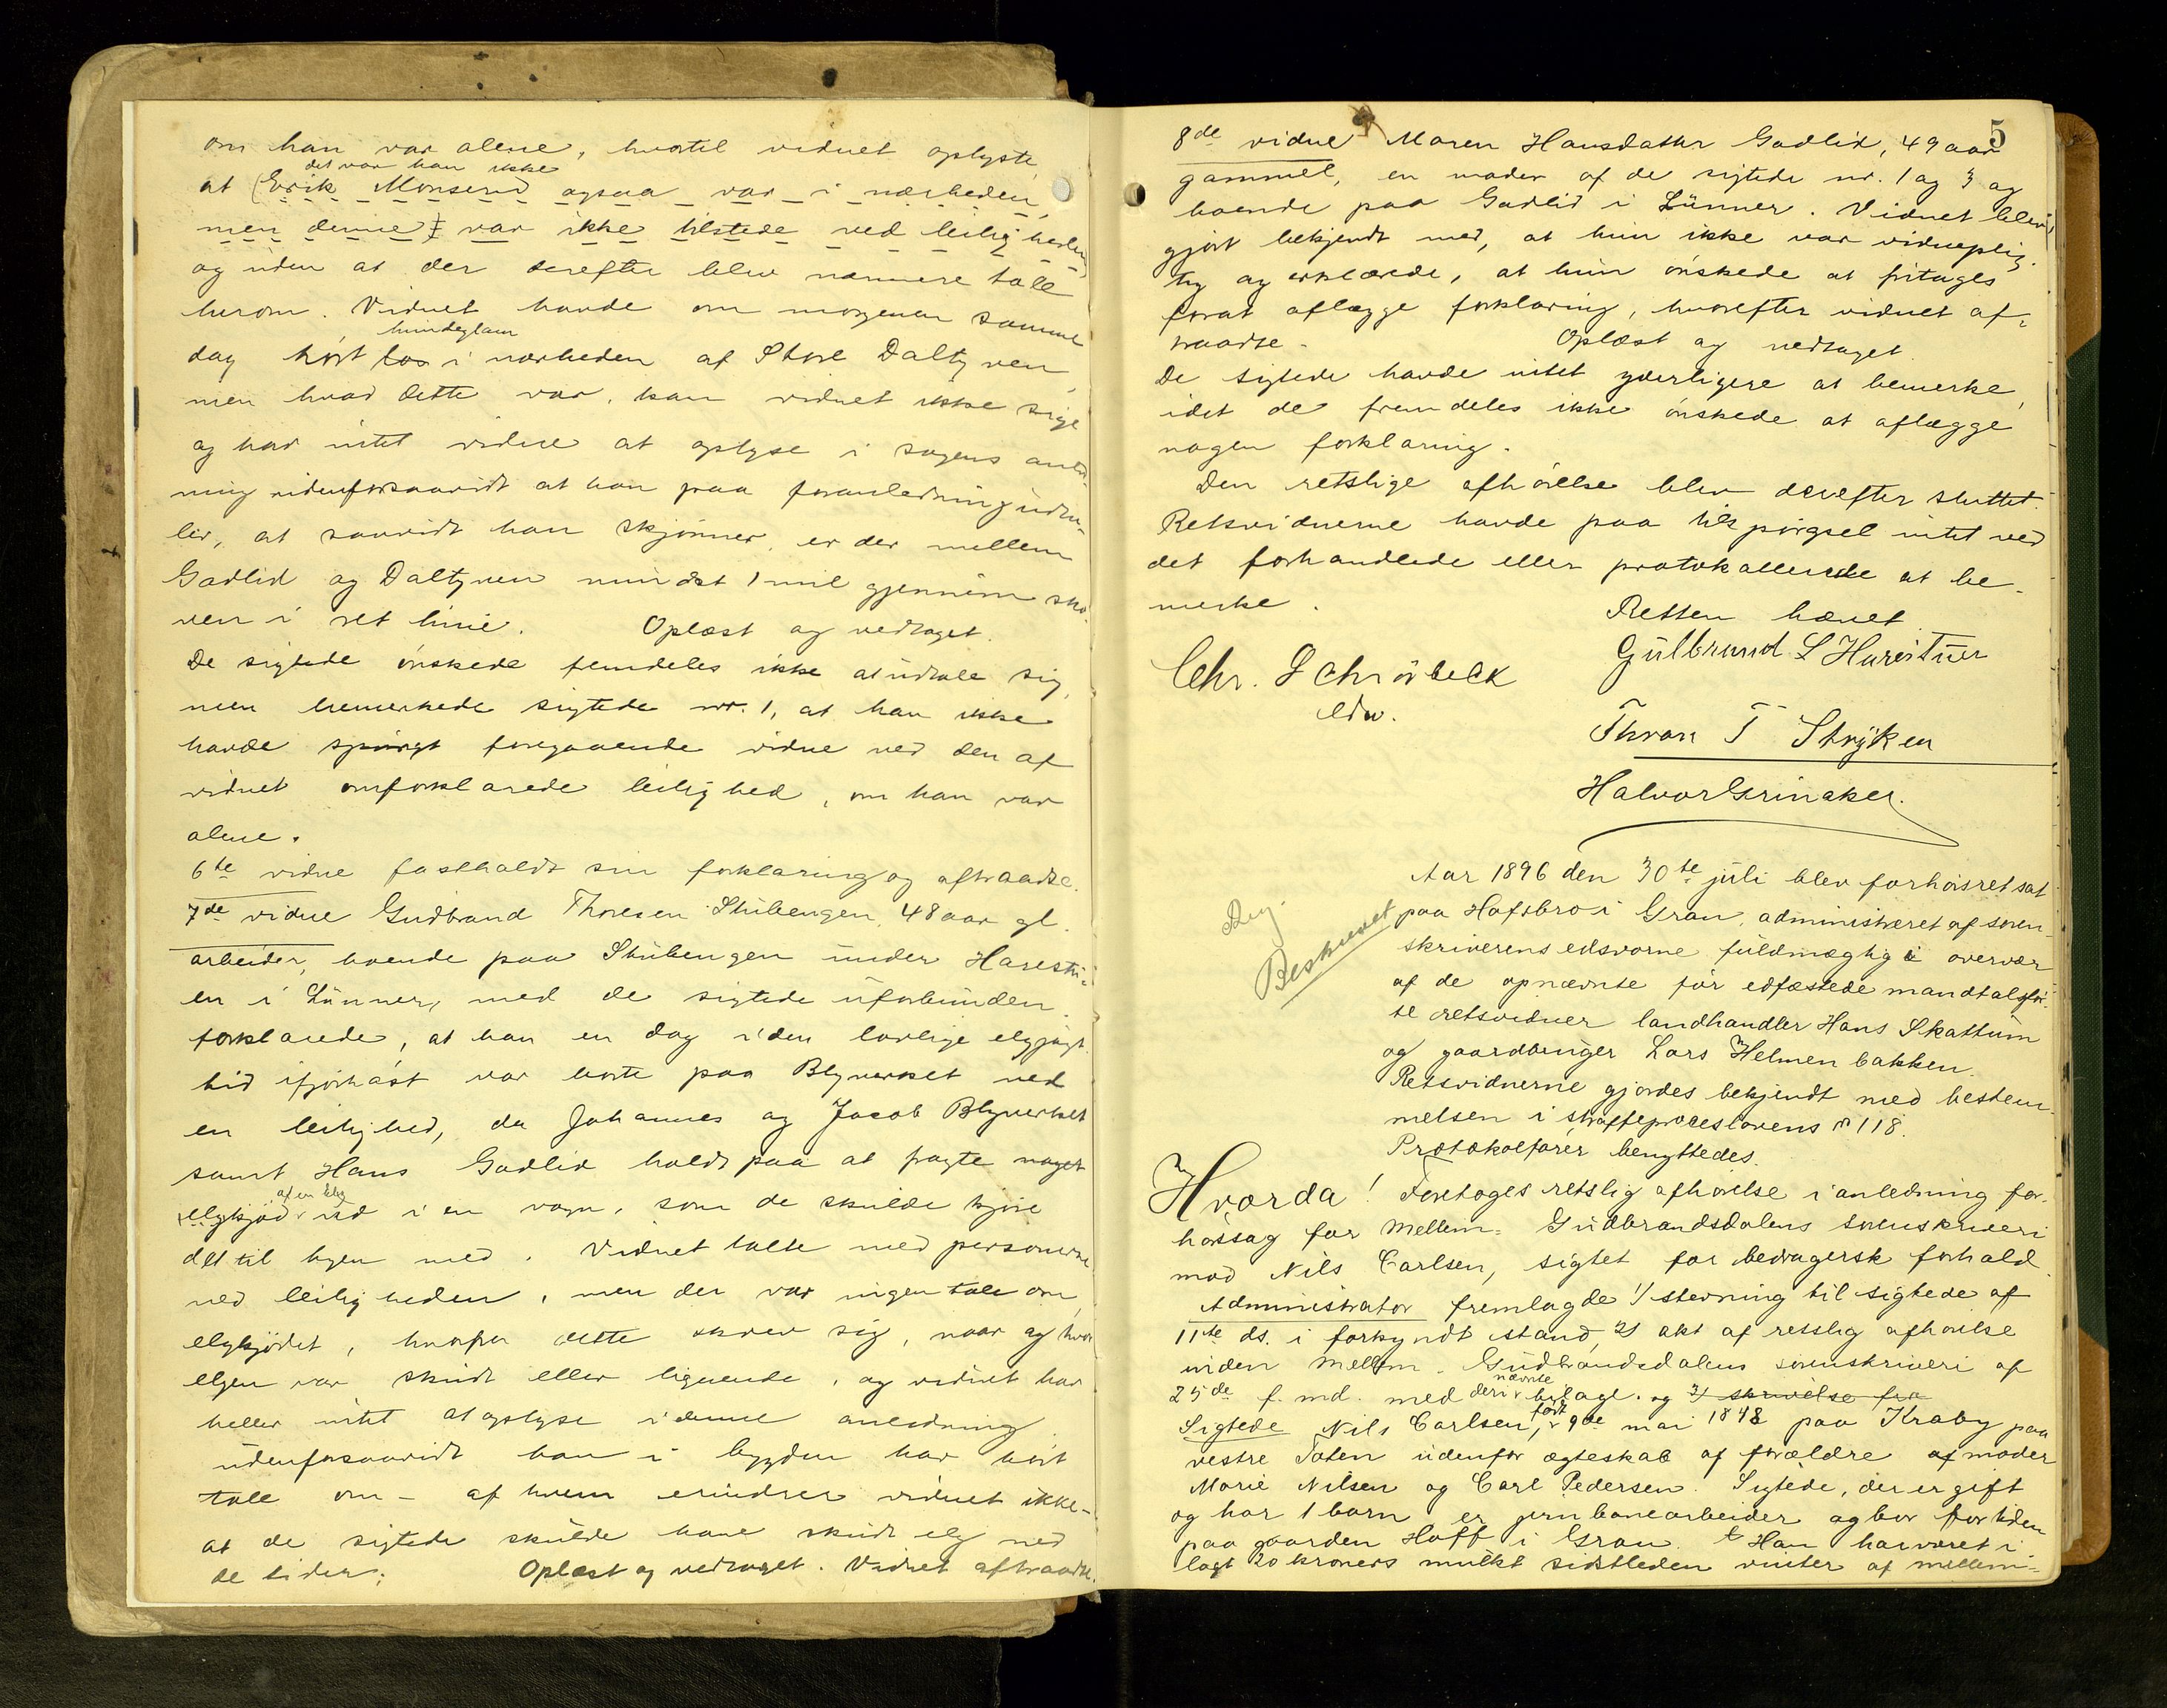 om han var alene, hvortil vidnet oplyste,
det var han ikke
at (Erik Monserud ogsaa var i nærheden,
men denne) var ikke tilstede ved leiligheden
og uden at der derefter blev nærmere tale
herom. Vidnet havde om morgenen samme
hundeglam
dag hørt los i nærheden af Store Daltjven,
men hvad dette var, kan vidnet ikke sige
og har intet videre at oplyse i sagens anled-
ning udenforsaavidt at han paa foranledning udta-
ler, at saavidt han skjønner, er der mellem
Gadlid og Daltjven mindst 1 mil gjennem sko-
ven i ret linie. Oplæst og vedtaget.
De sigtede ønskede fremdeles ikke at udtale sig,
men bemerkede sigtede nr. 1, at han ikke
havde spurgt foregaaende vidne ved den af
vidnet omforklarede leilighed, om han var
alene.
6te vidne fastholdt sin forklaring og aftraadte.
7de vidne Gudbrand Thoresen Stubengen 48 aar gl.
arbeider, boende paa Stubengen under Harestu-
en i Lunner, med de sigtede uforbunden
forklarede, at han en dag i den lovlige elgjagt-
tid ifjorhøst var borte paa Blyverket ved
en leilighed, da Johannes og Jacob Blyverket
samt Hans Gadlid holdt paa at fragte noget
af en elg
elgkjød ud i en vogn, som de skulde kjøre
det til byen med. Vidnet talte med personerne
ved leiligheden, men der var ingen tale om
elgkjødet, hvorfra dette skrev sig, naar og hvor
elgen var skudt eller lignende, og vidnet har
heller intet at oplyse i denne anledning
udenforsaavidt han i bygden har hørt
tale om - af hvem erindrer vidnet ikke -
at de sigtede skulde have skudt elg ved
de tider. Oplæst og vedtaget. Vidnet aftraadte.
5
8de vidne Maren Hansdatter Gadlid, 49 aar
gammel, en moder af de sigtede nr. 1 og 3 og
boende paa Gadlid i Lunner. Vidnet blev
gjort bekjendt med, at hun ikke var vidneplig-
tig og erklærede, at hun ønskede at fritages
forat aflægge forklaring, hvorefter vidnet af-
traadte. Oplæst og vedtaget.
De sigtede havde intet yderligere at bemerke,
idet de fremdeles ikke ønskede at aflægge
nogen forklaring.
Den retslige afhørelse blev derefter sluttet.
Retsvidnerne havde paa tilspørgsel intet ved
det forhandlede eller protokollerede at be-
merke.
Retten hævet
Chr. Schrøbeck
edsv.
Gulbrand L Harestuen
Thron T Stryken
Halvor Grinaker.
Reg.
Beskrevet
Aar 1896 den 30te juli blev forhørsret sat
paa Hofsbro i Gran, administreret af soren-
skriverens edsvorne fuldmægtig i overvær
af de opnævnte før edfæstede mandtalsfør-
te retsvidner landhandler Hans Skattum
og gaardbruger Lars Helmen bakken.
Retsvidnerne gjordes bekjendt med bestem-
melsen i straffeproceslovens § 118.
Protokolfører benyttedes.
Hvorda! Foretoges retslig afhørelse i anledning for-
hørssag for Mellem-Gudbrandsdalens sorenskriveri
mod Nils Carlsen, sigtet for bedragersk forhold.
Administrator fremlagde 1/ stevning til sigtede af
11te ds. i forkyndt stand, 2/ akt af retslig afhørelse
inden Mellem-Gudbrandsdalens sorenskriveri af
nævnte
25de f. md. med deri bilage. og 3/ skrivelse fra
født
Sigtede Nils Carlsen, 9de mai 1848 paa Kraby paa
vestre Toten udenfor ægteskab af forældre af moder
Marie Nilsen og Carl Pedersen. Sigtede, der er gift
og har 1 barn er jernbanearbeider og bor for tiden
paa gaarden Hoff i Gran. Han har været i
lagt 20 kroners mulkt sidstleden vinter af mellem-